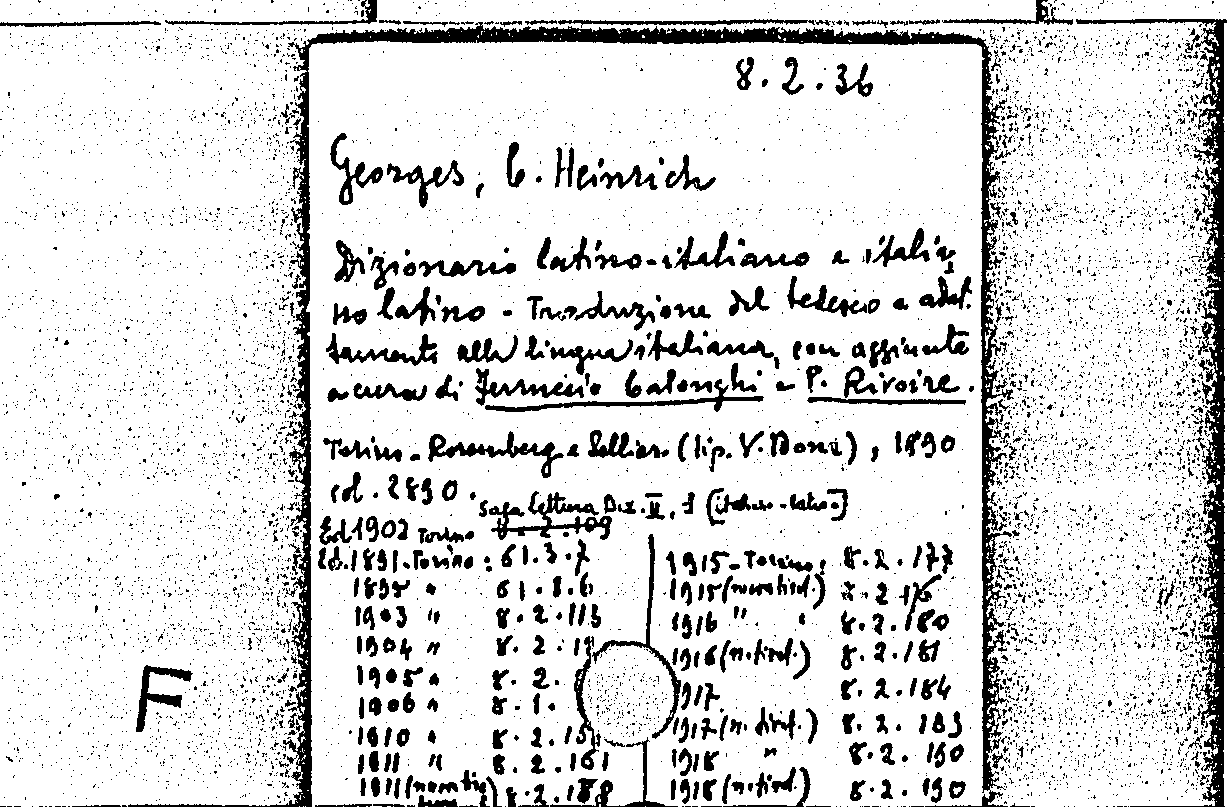 8.2.36
Georges, C. Heinrich
Dizionario latino-italiano e italia-
no latino - Traduzione del tedesco e adat-
tamento alla lingua italiana, con aggiunte
a cura di Ferruccio Calonghi e P. Rivoire.
Torino - Rosemberg e Sellier (tip. V. Bona), 1890
col. 2890.
Sala Lettura Diz. II, 1 (italiano-latino)
Ed. 1902 Torino 8.2.109
Ed. 1891 - Torino: 61.3.7
1895 " 61.8.6
1903 " 8.2.113
1904 "
1905 " 8.2.
1906 " 8.1.
1910 " 8.2.
1911 " 8.2.161
1911 8.2.188
1915 - Torino: 8.2.177
1915 8.2.176
1916 " " 8.2.180
1916 (n. tirat.) 8.2.181
1917 8.2.184
1917 (n. tirat.) 8.2.183
1918 " 8.2.190
1918 (n. tirat.) 8.2.190
F